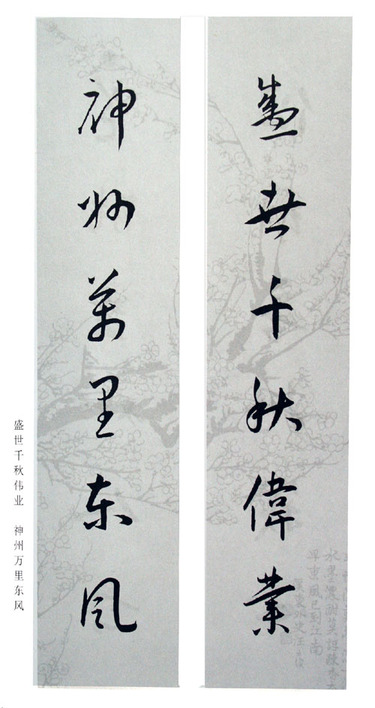 盛世千秋偉業
神州萬里东风
盛世千秋伟业 神州万里东风